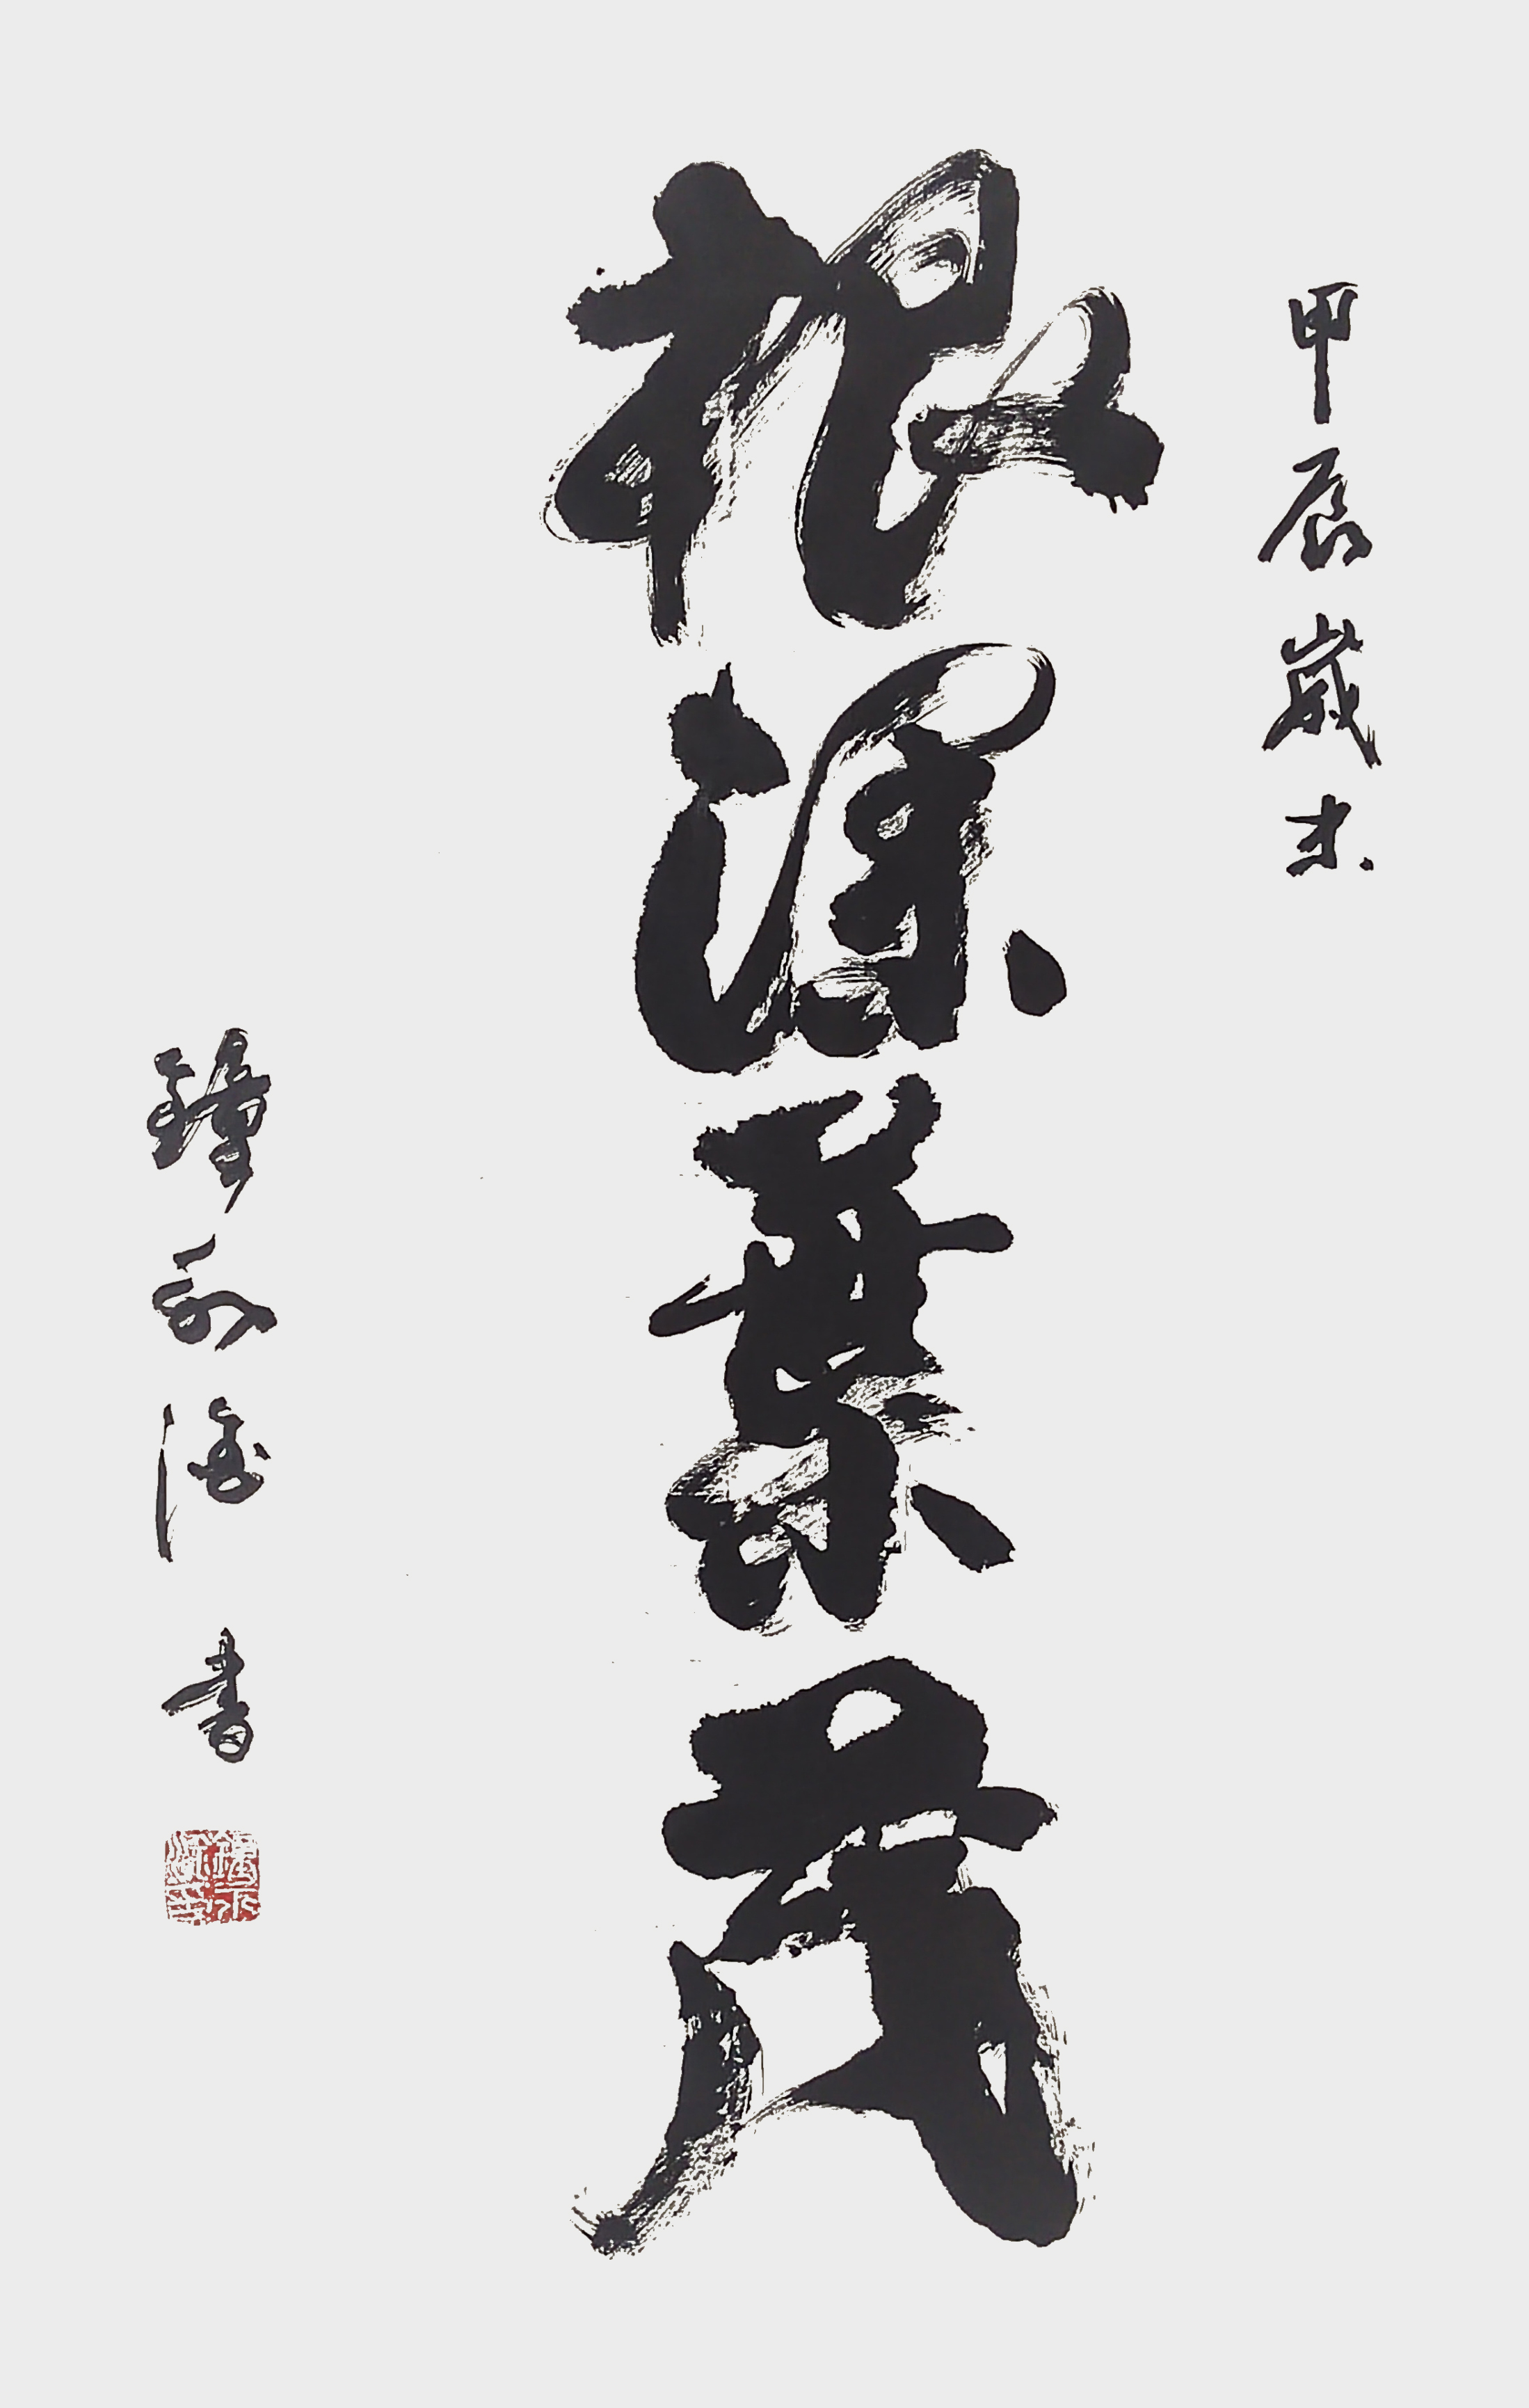 甲辰歲末
根深葉茂
鐘永海書